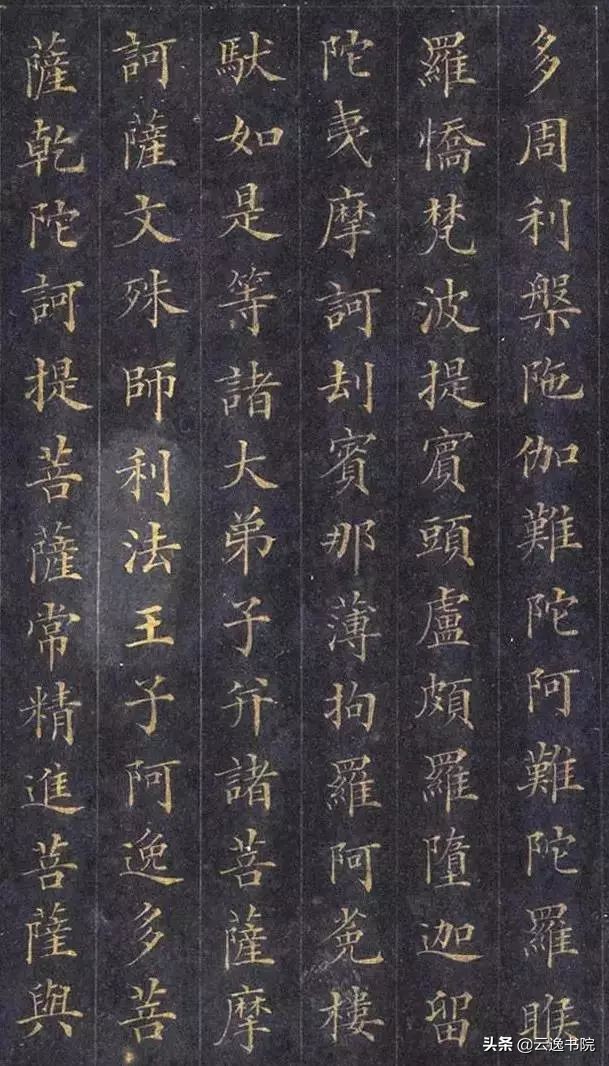 多周利槃陁伽難陀阿難陀羅睺
羅憍梵波提賓頭盧頗羅墮迦留
陀夷摩訶刦賓那薄拘羅阿㝹樓
馱如是等諸大弟子并諸菩薩摩
訶薩文殊師利法王子阿逸多菩
薩乾陀訶提菩薩常精進菩薩與
头条 @云逸书院